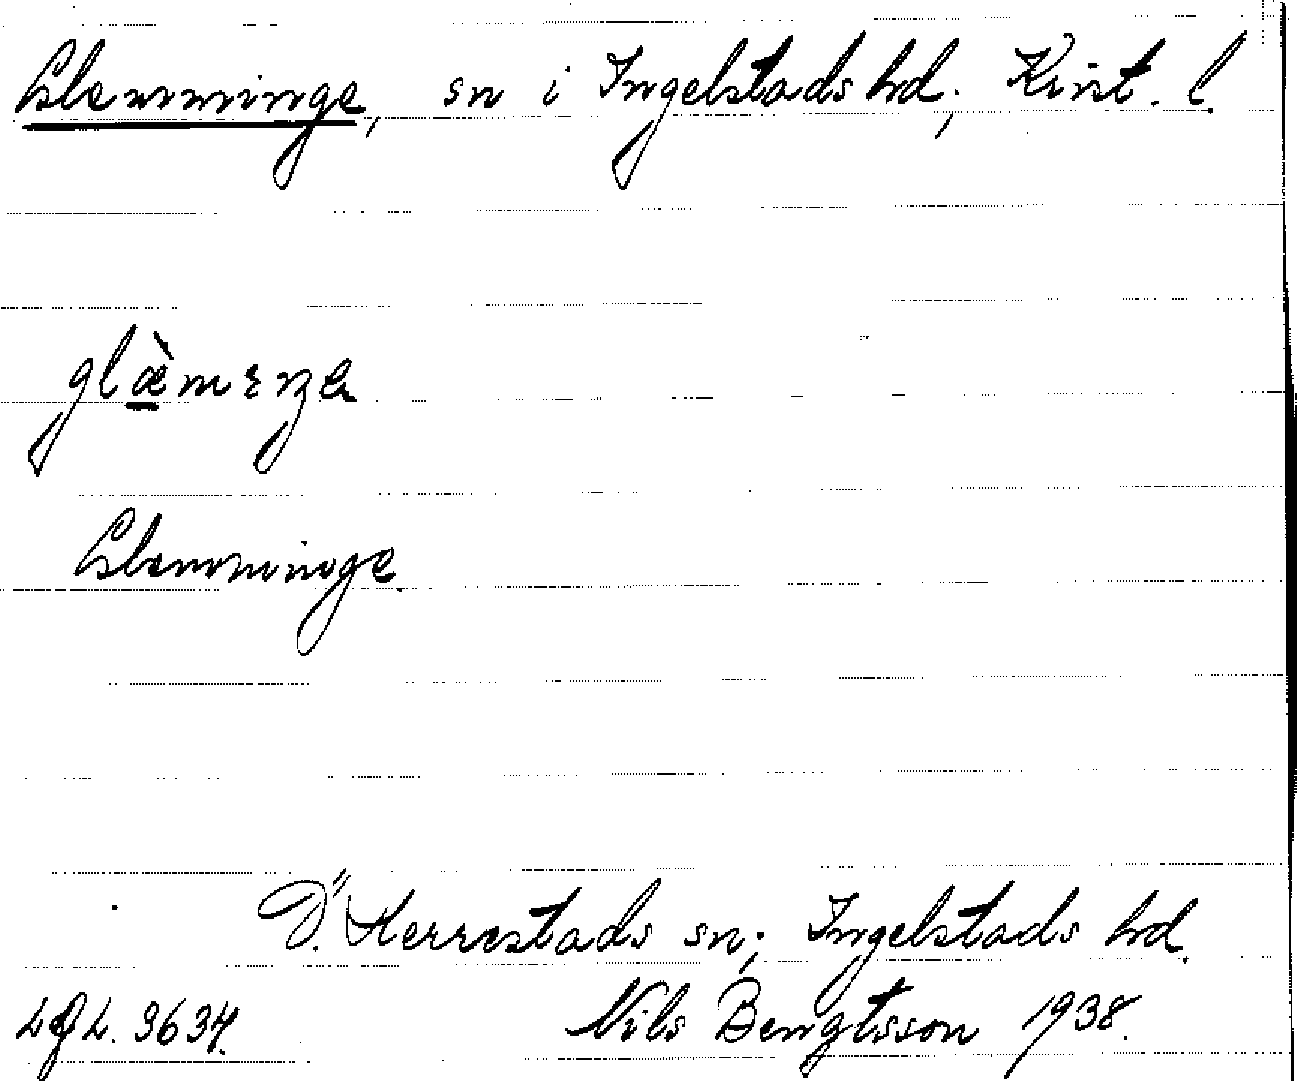 Glemminge, sn i Ingelstads hd; Krist. l.
glæ̀mɛŋɐ
Glemminge.
Ö. Herrestads sn; Ingelstads hd.
LGL. 3634.
Nils Bengtsson 1938.